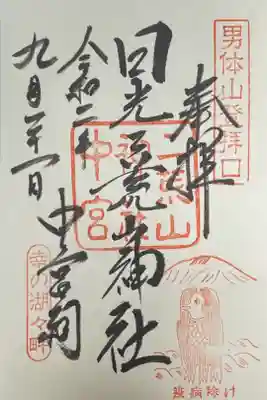 男体山登拝口
奉拝
日光二荒山神社
中宮祠
令和二年
九月二十一日
幸の湖々畔
疫病除け